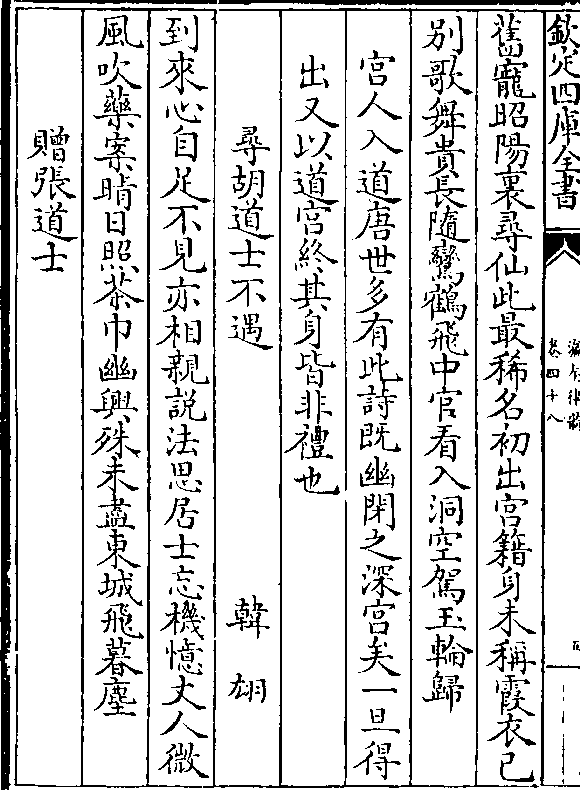 欽定四庫全書
卷四十八
舊寵昭陽裏尋仙此最稀名初出宮籍身未稱霞衣已
別歌舞貴長隨鸞鶴飛中官看入洞空駕玉輪歸
宮人入道唐世多有此詩既幽閉之深宮矣一旦得
出又以道宮終其身皆非禮也
尋胡道士不遇 韓翃
到來心自足不見亦相親説法思居士忘機憶丈人微
風吹藥案晴日照茶巾幽興殊未盡東城飛暮塵
贈張道士